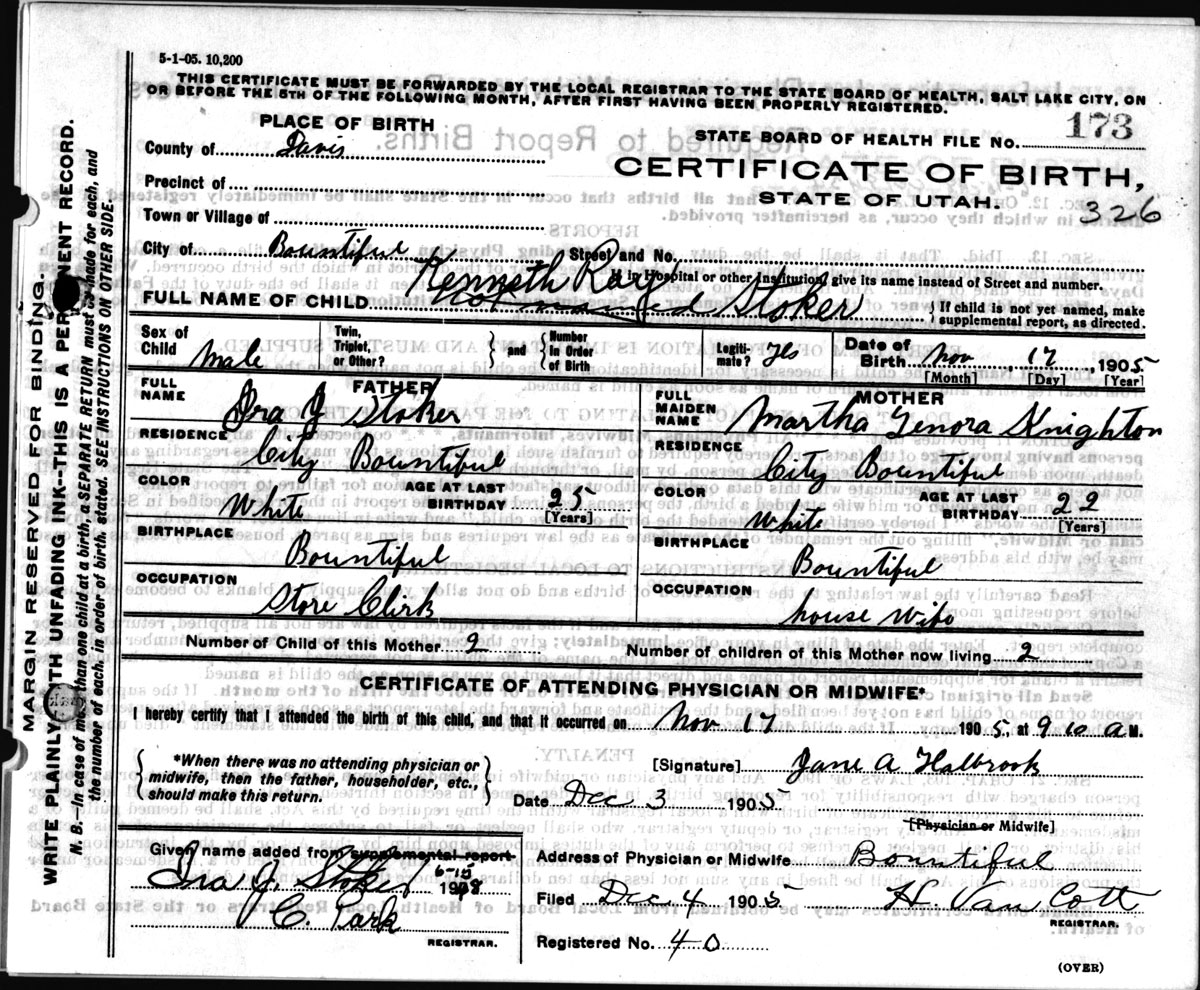 5-1-05. 10,200
THIS CERTIFICATE MUST BE FORWARDED BY THE LOCAL REGISTRAR TO THE STATE BOARD OF HEALTH, SALT LAKE CITY, ON
OR BEFORE THE 5TH OF THE FOLLOWING MONTH, AFTER FIRST HAVING BEEN PROPERLY REGISTERED.
PLACE OF BIRTH
STATE BOARD OF HEALTH FILE NO. 173
County of Davis
CERTIFICATE OF BIRTH,
Precinct of
STATE OF UTAH.
326
Town or Village of
City of Bountiful Street and No.
If in Hospital or other Institution give its name instead of Street and number.
Kenneth Ray
FULL NAME OF CHILD Stoker
If child is not yet named, make
supplemental report, as directed.
Sex of Child Male
Twin, Triplet, or Other? and Number In Order of Birth
Legiti-mate? Yes
Date of Birth Nov 17, 1905
[Month] [Day] [Year]
FATHER
FULL NAME Ira J Stoker
RESIDENCE City Bountiful
COLOR White AGE AT LAST BIRTHDAY 25
[Years]
BIRTHPLACE Bountiful
OCCUPATION Store Clirk
MOTHER
FULL MAIDEN NAME Martha Lenora Knighton
RESIDENCE City Bountiful
COLOR White AGE AT LAST BIRTHDAY 22
[Years]
BIRTHPLACE Bountiful
OCCUPATION house Wife
Number of Child of this Mother 2
Number of children of this Mother now living 2
CERTIFICATE OF ATTENDING PHYSICIAN OR MIDWIFE*
I hereby certify that I attended the birth of this child, and that it occurred on Nov 17 1905, at 9 10 A M.
*When there was no attending physician or
midwife, then the father, householder, etc.,
should make this return.
[Signature] Jane A Halbrook
Date Dec 3 1905
[Physician or Midwife]
Given name added from supplemental report
6-15
Ira J. Stoker 1908
C. Park
REGISTRAR.
Address of Physician or Midwife Bountiful
Filed Dec 4 1905 H. Van Cott
REGISTRAR.
Registered No. 40
(OVER)
MARGIN RESERVED FOR BINDING
WRITE PLAINLY WITH UNFADING INK--THIS IS A PERMANENT RECORD.
N. B.—In case of more than one child at a birth, a SEPARATE RETURN must be made for each, and
the number of each, in order of birth, stated. SEE INSTRUCTIONS ON OTHER SIDE.